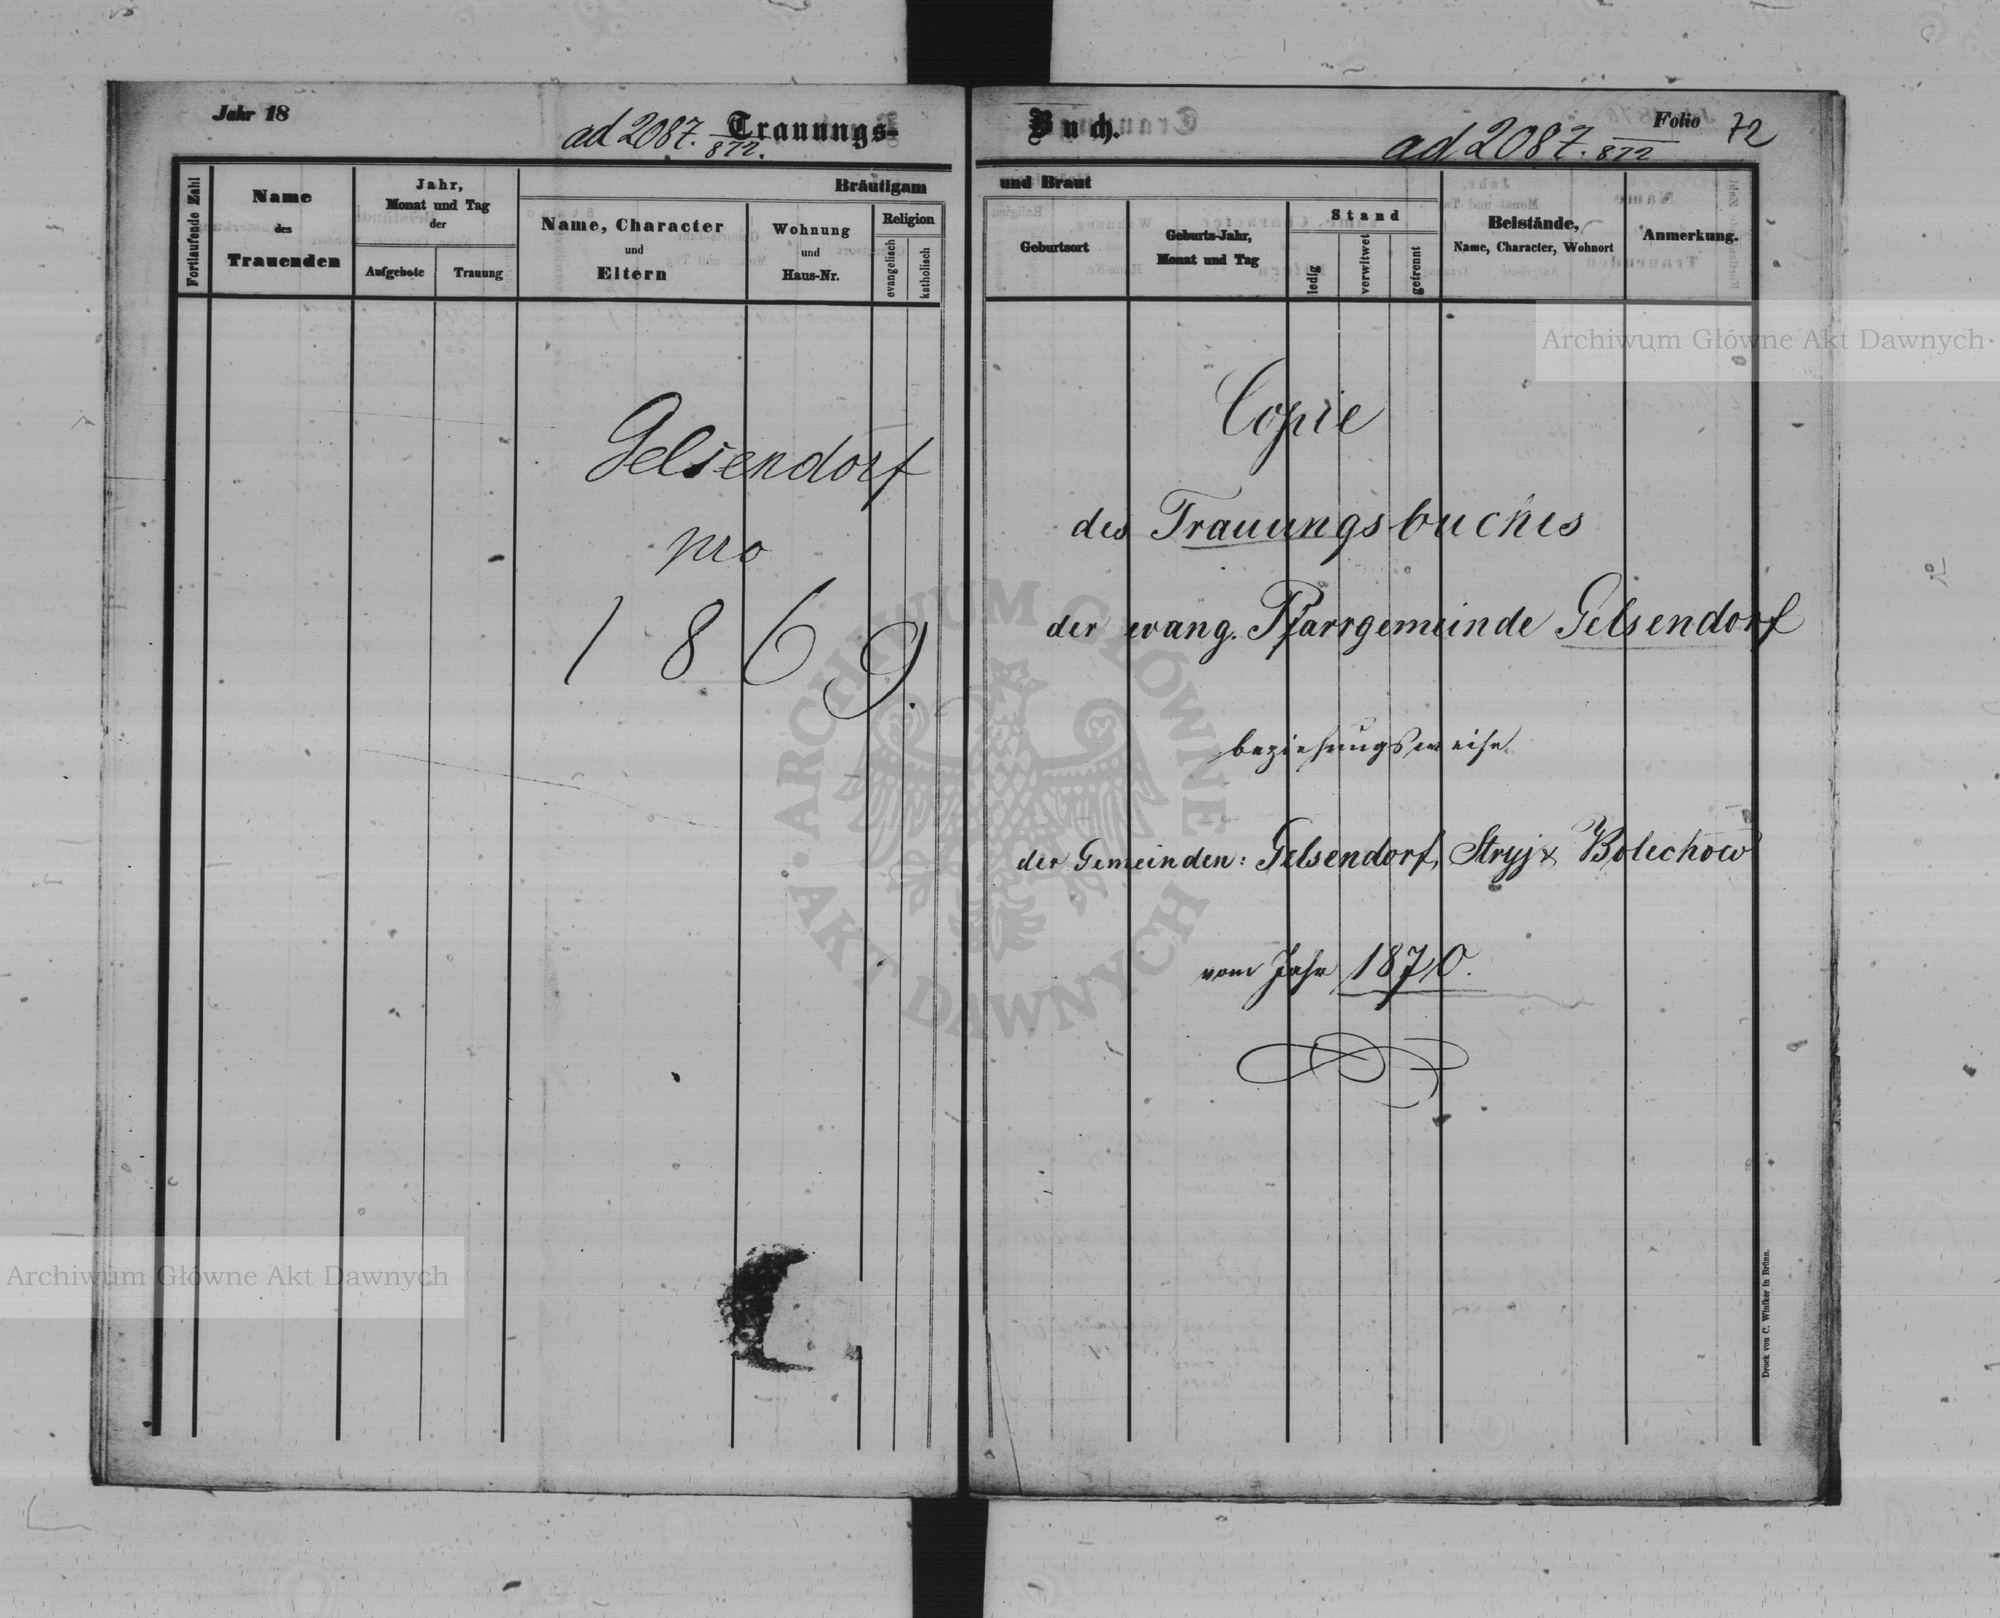 Jahr 18
ad 2087. 872.
Trauungs-
Fortlaufende Zahl
Name
des
Trauenden
Jahr,
Monat und Tag
der
Aufgebote
Trauung
Bräutigam
Name, Character
und
Eltern
Wohnung
und
Haus-Nr.
Religion
evangelisch
katholisch
Gelsendorf
pro
1869.
Buch.
ad 2087. 872
Folio 72
und Braut
Geburtsort
Geburts-Jahr,
Monat und Tag
Stand
ledig
verwitwet
getrennt
Beistände,
Name, Character, Wohnort
Anmerkung.
Copie
des Trauungsbuches
der evang. Pfarrgemeinde Gelsendorf
beziehungsweise
der Gemeinden: Gelsendorf, Stryj & Bolechow
vom Jahr 1870.
Druck von C. Winiker in Brünn.
Archiwum Główne Akt Dawnych
Archiwum Główne Akt Dawnych
ARCHIWUM GŁÓWNE
AKT DAWNYCH